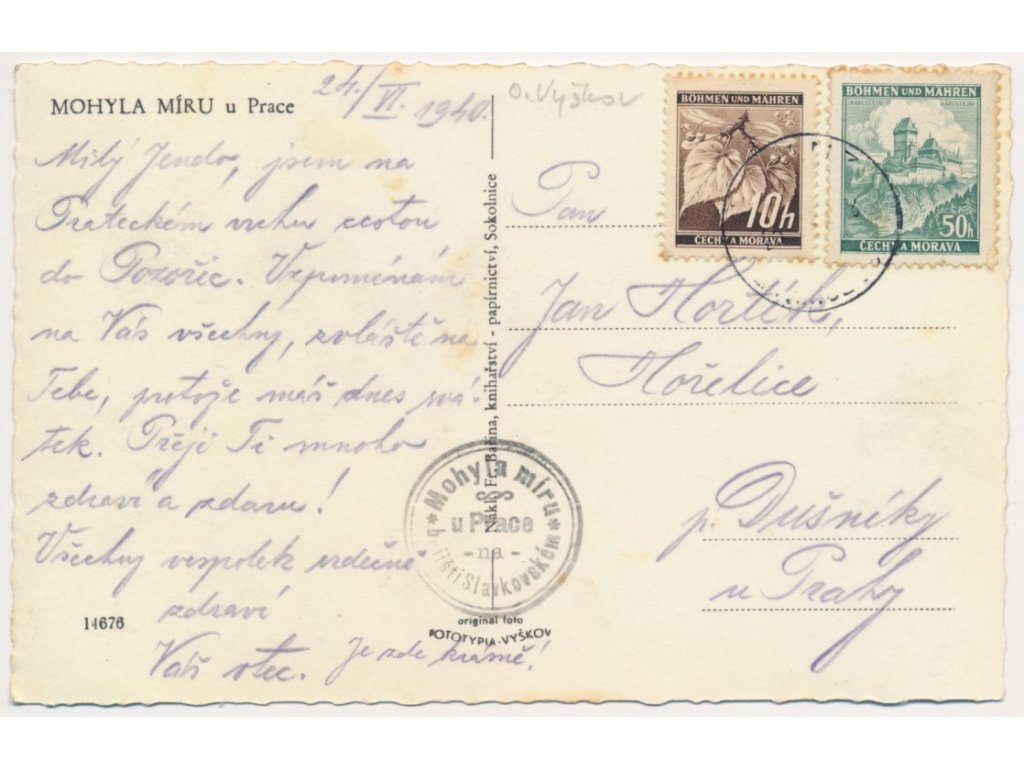 MOHYLA MÍRU u Prace
24./VI. 1940.
Milý Jendo, jsem na
Prateckém vrchu cestou
do Pozořic. Vzpomínám
na Vás všechny, zvláště na
Tebe, protože máš dnes svá-
tek. Přeji Ti mnoho
zdraví a zdaru!
Všechny vespolek srdečně
zdraví
Váš otec.
Je zde krásně!
14676
Nákl. Fr. Bařina, knihařství - papírnictví, Sokolnice
Mohyla míru
u Prace
- na -
bojišti Slavkovském
original foto
FOTOTYPIA-VYŠKOV
O. Vyškov
BÖHMEN UND MÄHREN
10h
ČECHY A MORAVA
BÖHMEN UND MÄHREN
KARLSTEIN KARLŠTEJN
50h
ČECHY A MORAVA
Pan
Jan Hortík,
Hořelice
p. Dušníky
u Prahy